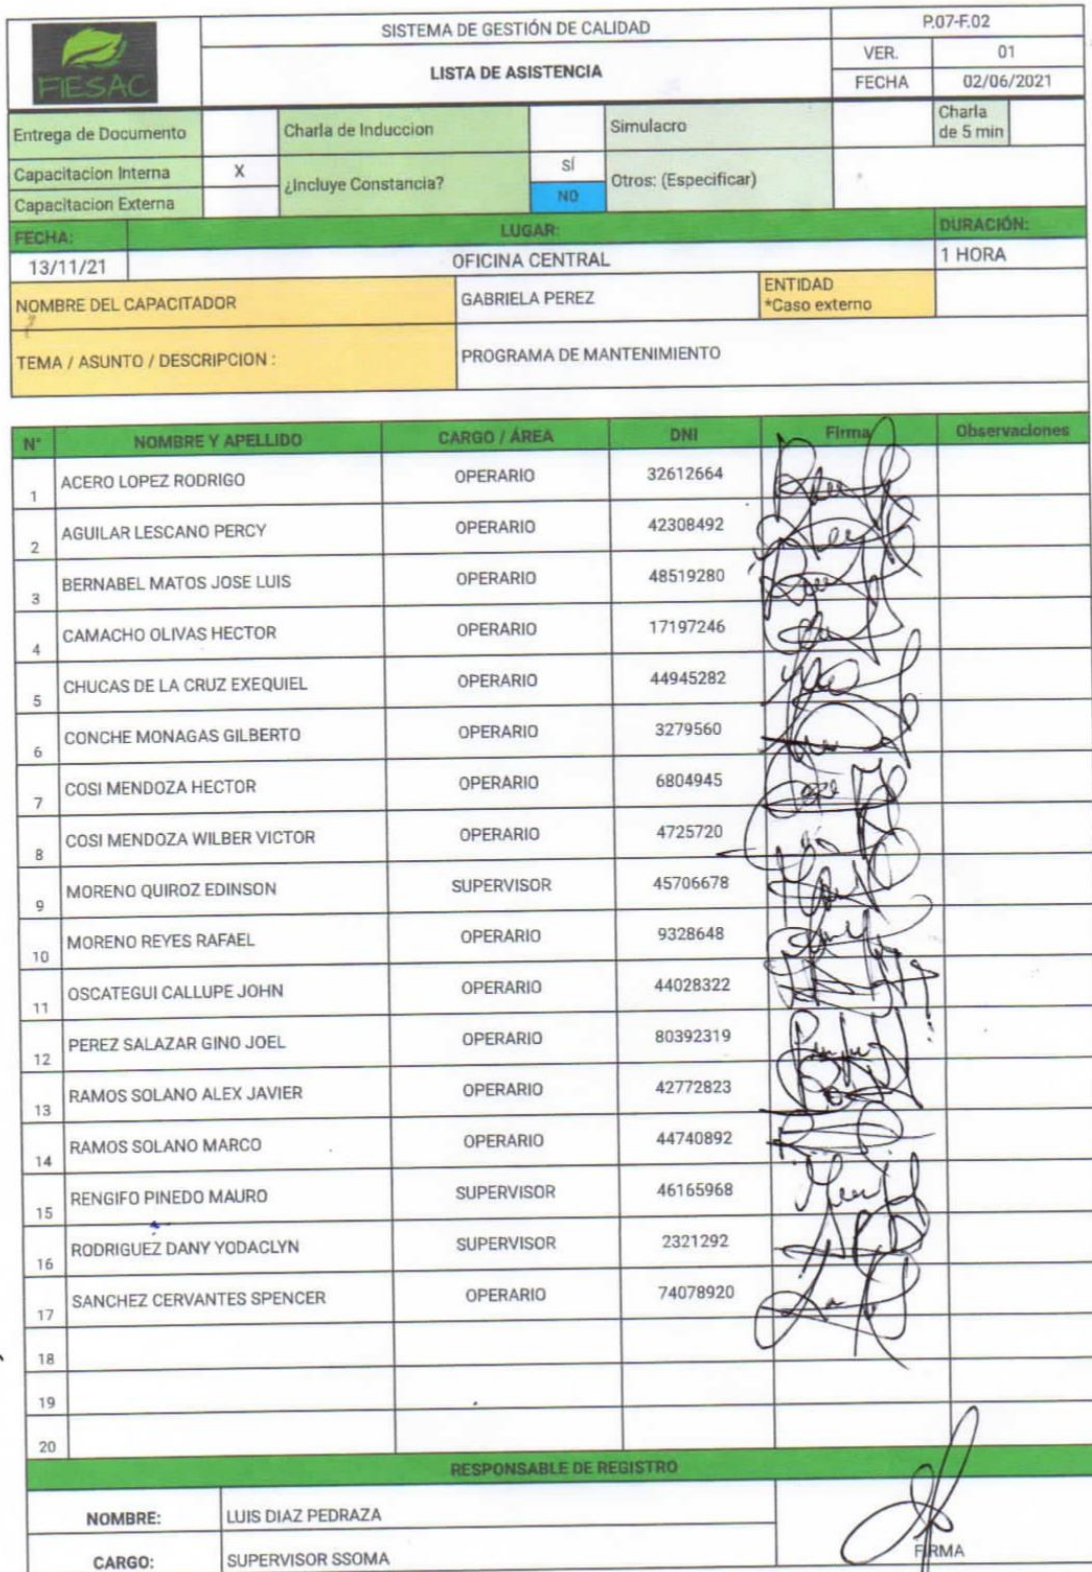 FIESAC
SISTEMA DE GESTIÓN DE CALIDAD
P.07-F.02
LISTA DE ASISTENCIA
VER. 01
FECHA 02/06/2021
Entrega de Documento
Charla de Induccion
Simulacro
Charla
de 5 min
Capacitacion Interna X
¿Incluye Constancia?
SÍ
Otros: (Especificar)
Capacitacion Externa
NO
FECHA: LUGAR: DURACIÓN:
13/11/21 OFICINA CENTRAL 1 HORA
NOMBRE DEL CAPACITADOR GABRIELA PEREZ
ENTIDAD
*Caso externo
TEMA / ASUNTO / DESCRIPCION : PROGRAMA DE MANTENIMIENTO
N° NOMBRE Y APELLIDO CARGO / ÁREA DNI Firma Observaciones
1 ACERO LOPEZ RODRIGO OPERARIO 32612664
2 AGUILAR LESCANO PERCY OPERARIO 42308492
3 BERNABEL MATOS JOSE LUIS OPERARIO 48519280
4 CAMACHO OLIVAS HECTOR OPERARIO 17197246
5 CHUCAS DE LA CRUZ EXEQUIEL OPERARIO 44945282
6 CONCHE MONAGAS GILBERTO OPERARIO 3279560
7 COSI MENDOZA HECTOR OPERARIO 6804945
8 COSI MENDOZA WILBER VICTOR OPERARIO 4725720
9 MORENO QUIROZ EDINSON SUPERVISOR 45706678
10 MORENO REYES RAFAEL OPERARIO 9328648
11 OSCATEGUI CALLUPE JOHN OPERARIO 44028322
12 PEREZ SALAZAR GINO JOEL OPERARIO 80392319
13 RAMOS SOLANO ALEX JAVIER OPERARIO 42772823
14 RAMOS SOLANO MARCO OPERARIO 44740892
15 RENGIFO PINEDO MAURO SUPERVISOR 46165968
16 RODRIGUEZ DANY YODACLYN SUPERVISOR 2321292
17 SANCHEZ CERVANTES SPENCER OPERARIO 74078920
18
19
20
RESPONSABLE DE REGISTRO
NOMBRE: LUIS DIAZ PEDRAZA
CARGO: SUPERVISOR SSOMA
FIRMA